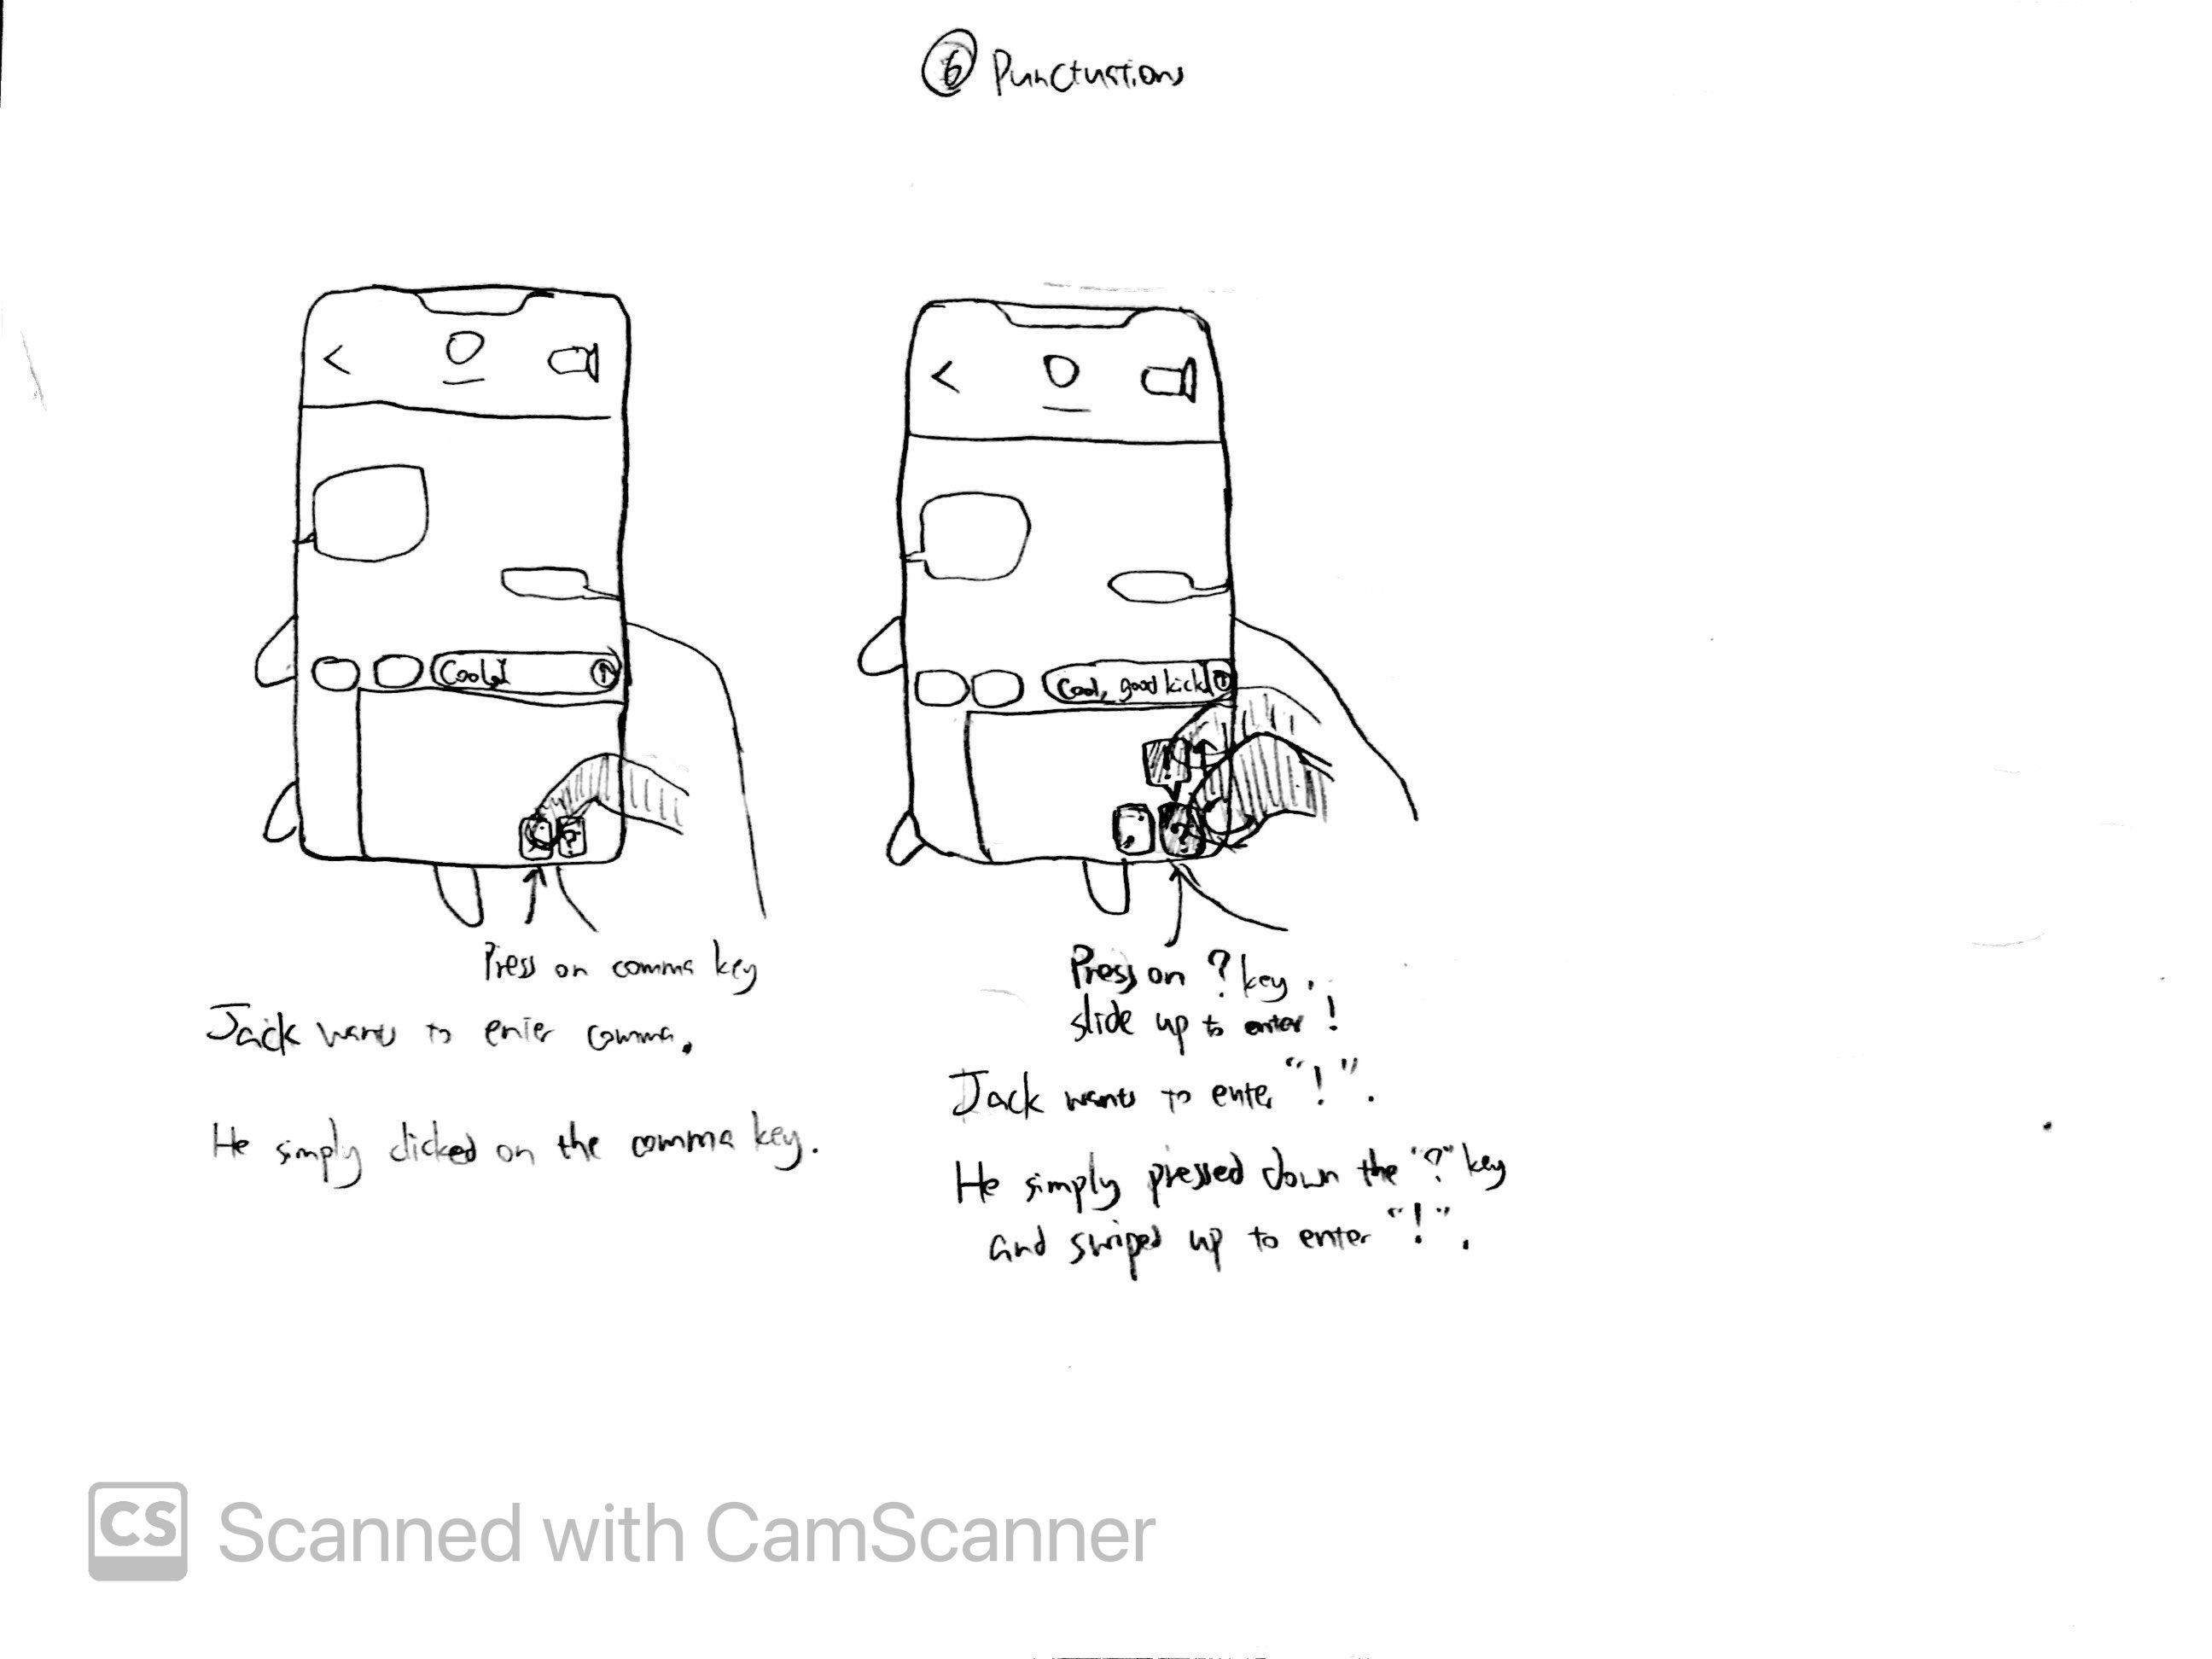 6 Punctuations
Cool,
Cool, good kick
?
!
,
?
Press on comma key
Jack wants to enter comma.
He simply clicked on the comma key.
Press on ? key,
slide up to enter !
Jack wants to enter "!".
He simply pressed down the "?" key
and swiped up to enter "!".
CS Scanned with CamScanner